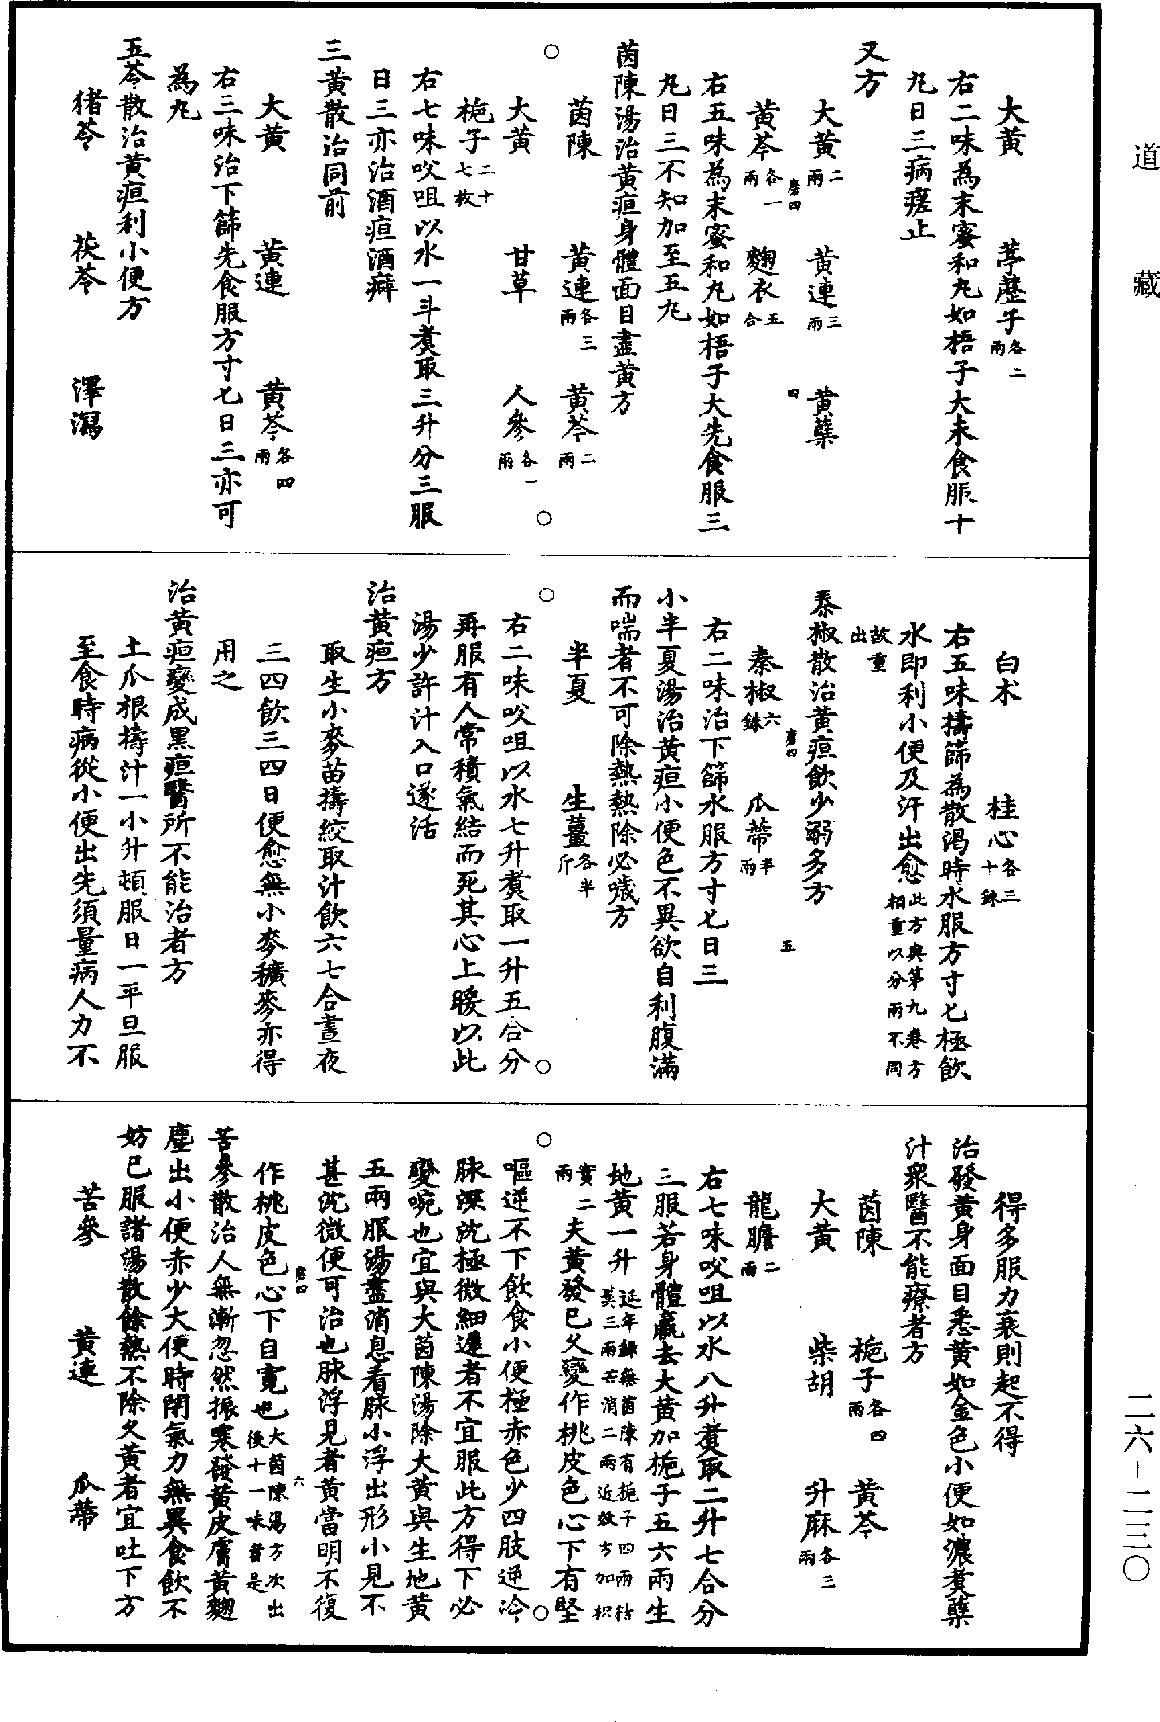 道藏
二六－二三〇
大黃　葶藶子各二兩
右二味為末蜜和丸如梧子大未食服十
丸日三病瘥止
又方
大黃二兩　黃連三兩　黃蘗四
唐四
黃芩各一兩　麴衣五合
右五味為末蜜和丸如梧子大先食服三
丸日三不知加至五丸
茵陳湯治黃疸身體面目盡黃方
茵陳　黃連各三兩　黃芩二兩
大黃　甘草　人參各一兩
梔子二十七枚
右七味㕮咀以水一斗煑取三升分三服
日三亦治酒疸酒癖
三黃散治同前
大黃　黃連　黃芩各四兩
右三味治下篩先食服方寸匕日三亦可
為丸
五苓散治黃疸利小便方
猪苓　茯苓　澤瀉
白术　桂心各三十銖
右五味擣篩為散渴時水服方寸匕極飲
水即利小便及汗出愈此方與第九卷方相重以分兩不同
故重出
秦椒散治黃疸飲少溺多方
唐四　五
秦椒六銖　瓜蒂半兩
右二味治下篩水服方寸匕日三
小半夏湯治黃疸小便色不異欲自利腹滿
而喘者不可除熱熱除必噦方
半夏　生薑各半斤
右二味㕮咀以水七升煑取一升五合分
再服有人常積氣結而死其心上暖以此
湯少許汁入口遂活
治黃疸方
取生小麥苗擣絞取汁飲六七合晝夜
三四飲三四日便愈無小麥穬麥亦得
用之
治黃疸變成黑疸醫所不能治者方
土瓜根擣汁一小升頓服日一平旦服
至食時病從小便出先須量病人力不
得多服力衰則起不得
治發黃身面目悉黃如金色小便如濃煑蘗
汁衆醫不能療者方
茵陳　梔子各四兩　黃芩
大黃　柴胡　升麻各三兩
龍膽二兩
右七味㕮咀以水八升煑取二升七合分
三服若身體羸去大黃加梔子五六兩生
地黃一升延年錄無茵陳有梔子四兩栝蔞三兩芒消二兩近效方加枳
實二兩夫黃發已久變作桃皮色心下有堅
嘔逆不下飲食小便極赤色少四肢逆冷
脉深沈極微細遲者不宜服此方得下必
變啘也宜與大茵陳湯除大黃與生地黃
五兩服湯盡消息看脉小浮出形小見不
甚沈微便可治也脉浮見者黃當明不復
唐四　六
作桃皮色心下自寬也大茵陳湯方次出後十一味者是
苦參散治人無漸忽然振寒發黃皮膚黃麴
塵出小便赤少大便時閉氣力無異食飲不
妨已服諸湯散餘熱不除久黃者宜吐下方
苦參　黃連　瓜蒂